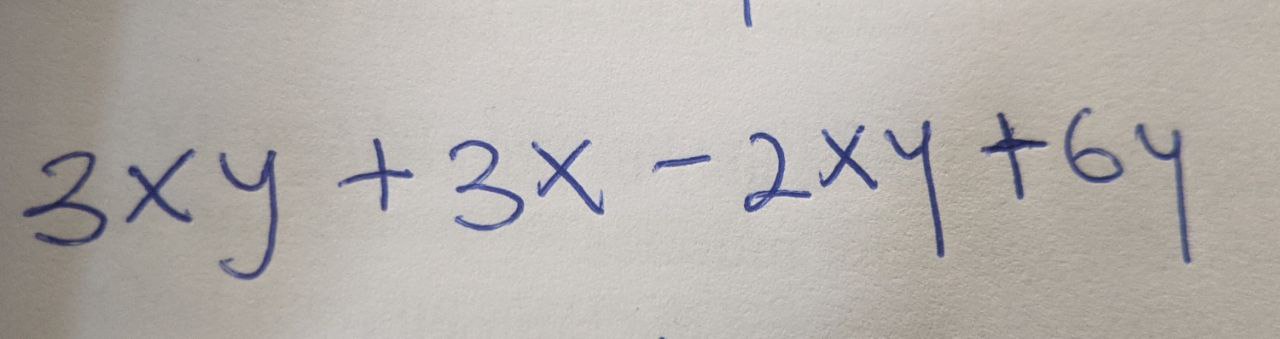 3xy + 3x - 2xy + 6y